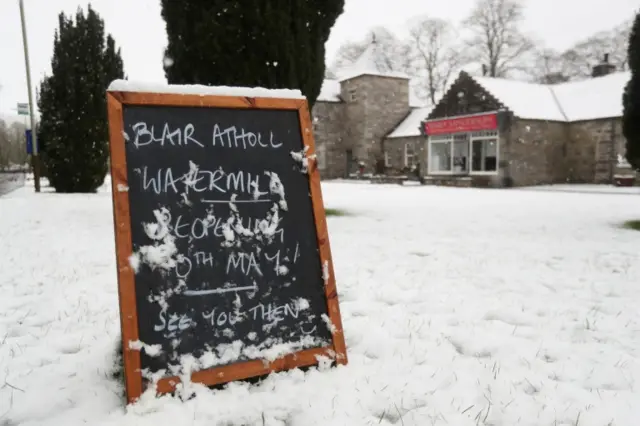 BLAIR ATHOLL
WATERMILL
REOPENING
MAY!
SEE YOU THEN